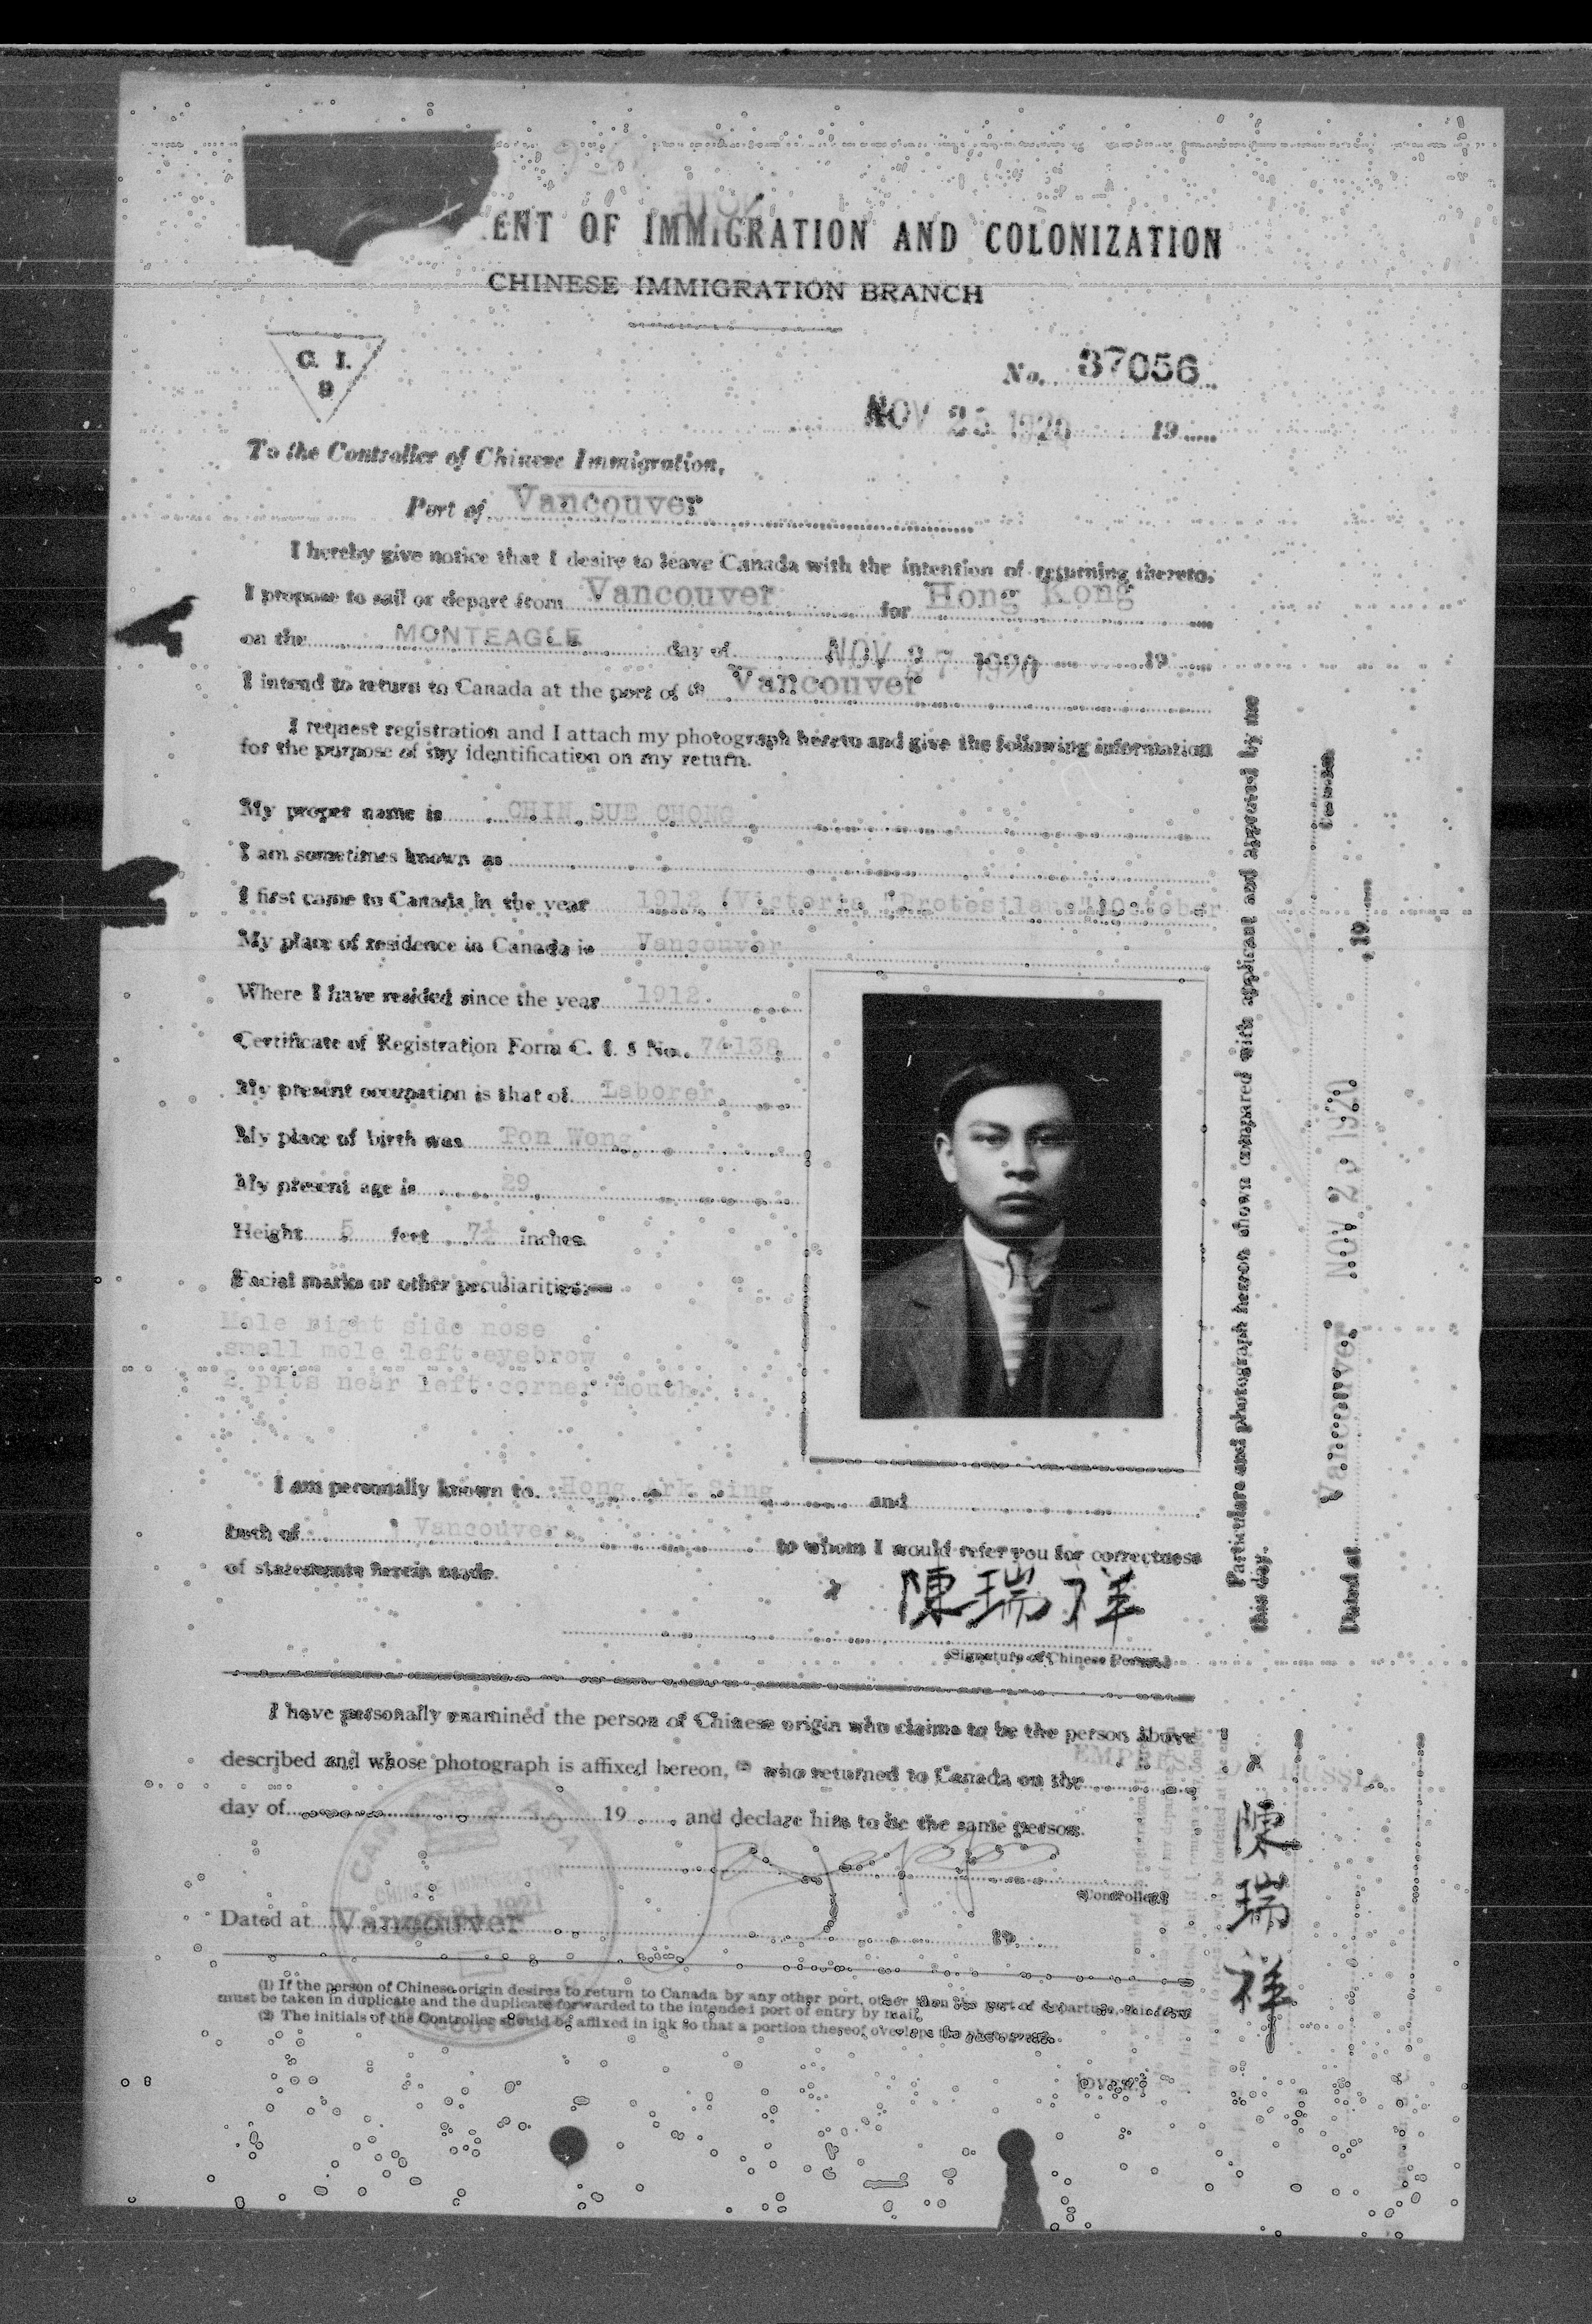 ENT OF IMMIGRATION AND COLONIZATION
CHINESE IMMIGRATION BRANCH
C. I.
9
No. 37056
NOV 25 1920 19
To the Controller of Chinese Immigration,
Port of Vancouver
I hereby give notice that I desire to leave Canada with the intention of returning thereto.
I propose to sail or depart from Vancouver for Hong Kong
on the MONTEAGLE day of NOV 27 1920 19
I intend to return to Canada at the port of (1) Vancouver
I request registration and I attach my photograph hereto and give the following information
for the purpose of my identification on my return.
My proper name is CHIN SUE CHONG
I am sometimes known as
I first came to Canada in the year 1912 (Victoria "Protesilaus" October
My place of residence in Canada is Vancouver
Where I have resided since the year 1912.
Certificate of Registration Form C. I. 5 No. 74138
My present occupation is that of Laborer
My place of birth was Pon Wong
My present age is 29
Height 5 feet 7½ inches.
Facial marks or other peculiarities:—
Mole right side nose
small mole left eyebrow
2 pits near left corner mouth
I am personally known to Hong Ark Sing and
both of Vancouver to whom I would refer you for correctness
of statements herein made.
陳瑞祥
Signature of Chinese Person
I have personally examined the person of Chinese origin who claims to be the person above
described and whose photograph is affixed hereon, (2) who returned to Canada on the EMPRESS OF RUSSIA
day of 19 and declare him to be the same person.
Controller
Dated at Vancouver 19
1921
(1) If the person of Chinese origin desires to return to Canada by any other port, other than the port of departure, this form
must be taken in duplicate and the duplicate forwarded to the intended port of entry by mail.
(2) The initials of the Controller should be affixed in ink so that a portion thereof overlaps the photograph.
[OVER]
Particulars and photograph hereon shown compared with applicant and approved by me
this day.
Controller
Dated at Vancouver NOV 25 1920 19
陳瑞祥